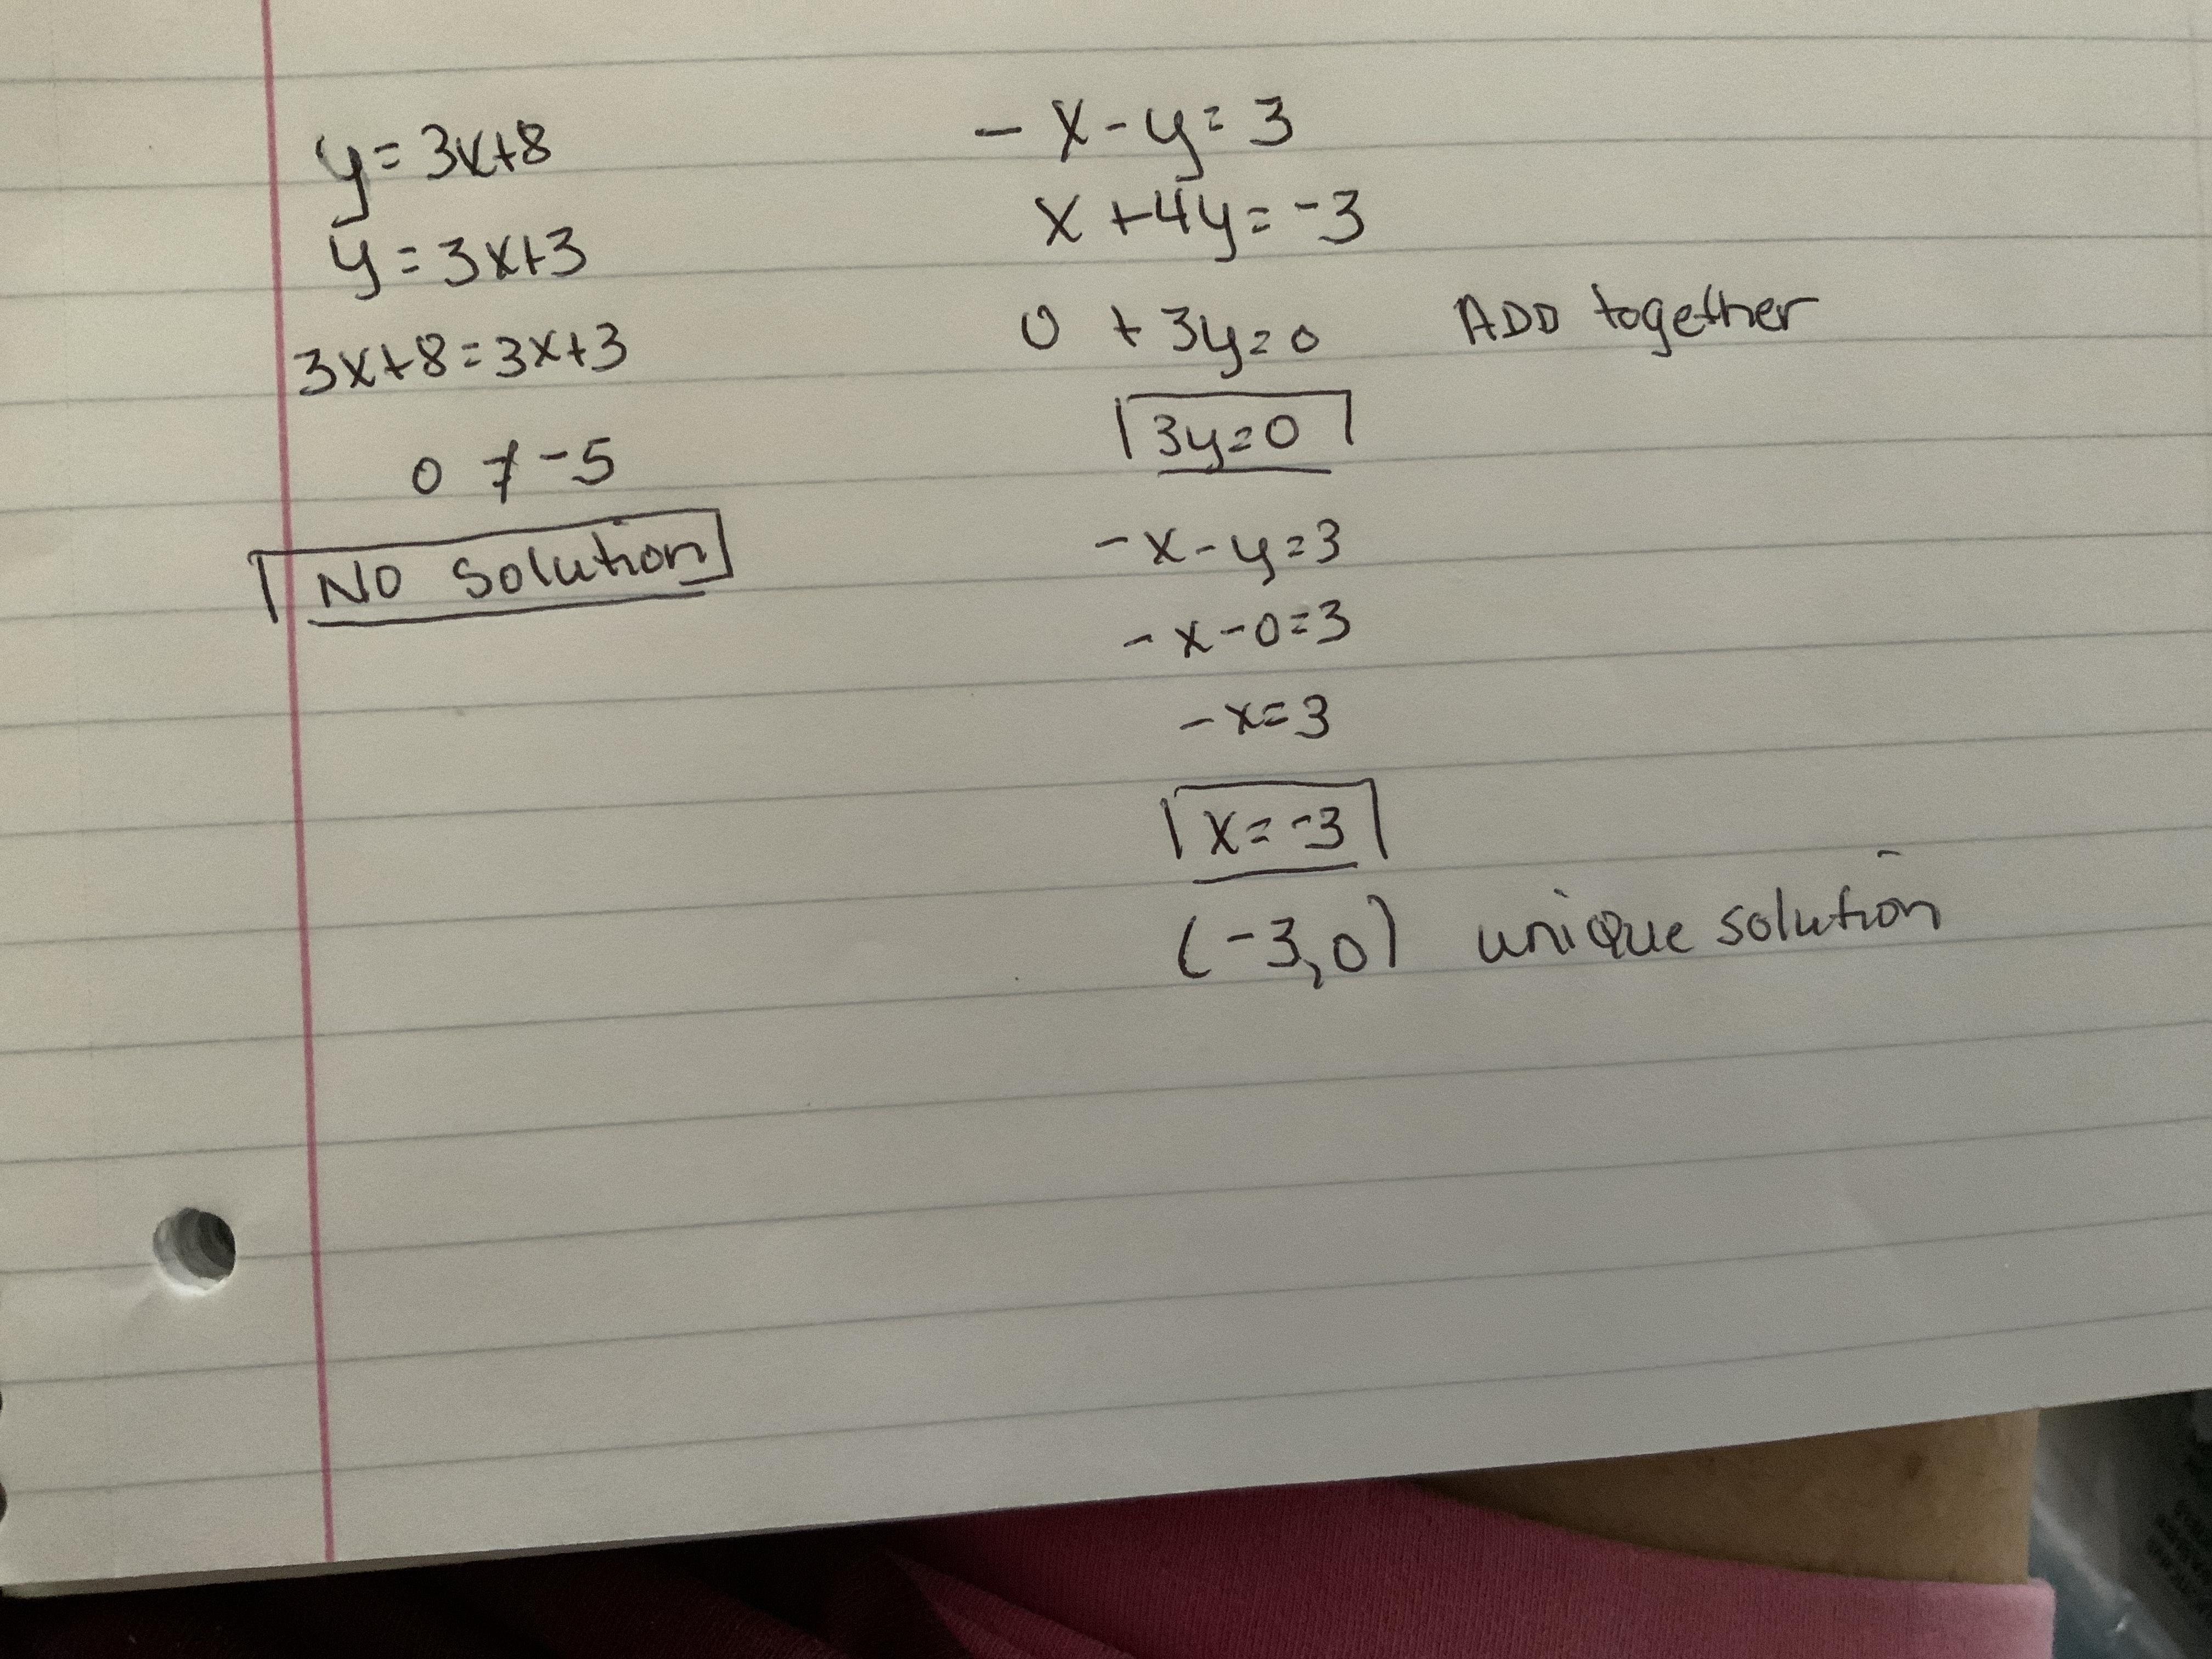 y=3x+8
y=3x+3
3x+8=3x+3
0 ≠ -5
NO Solution
-x-y=3
x+4y=-3
0 +3y=0 ADD together
3y=0
-x-y=3
-x-0=3
-x=3
x=-3
(-3,0) unique solution